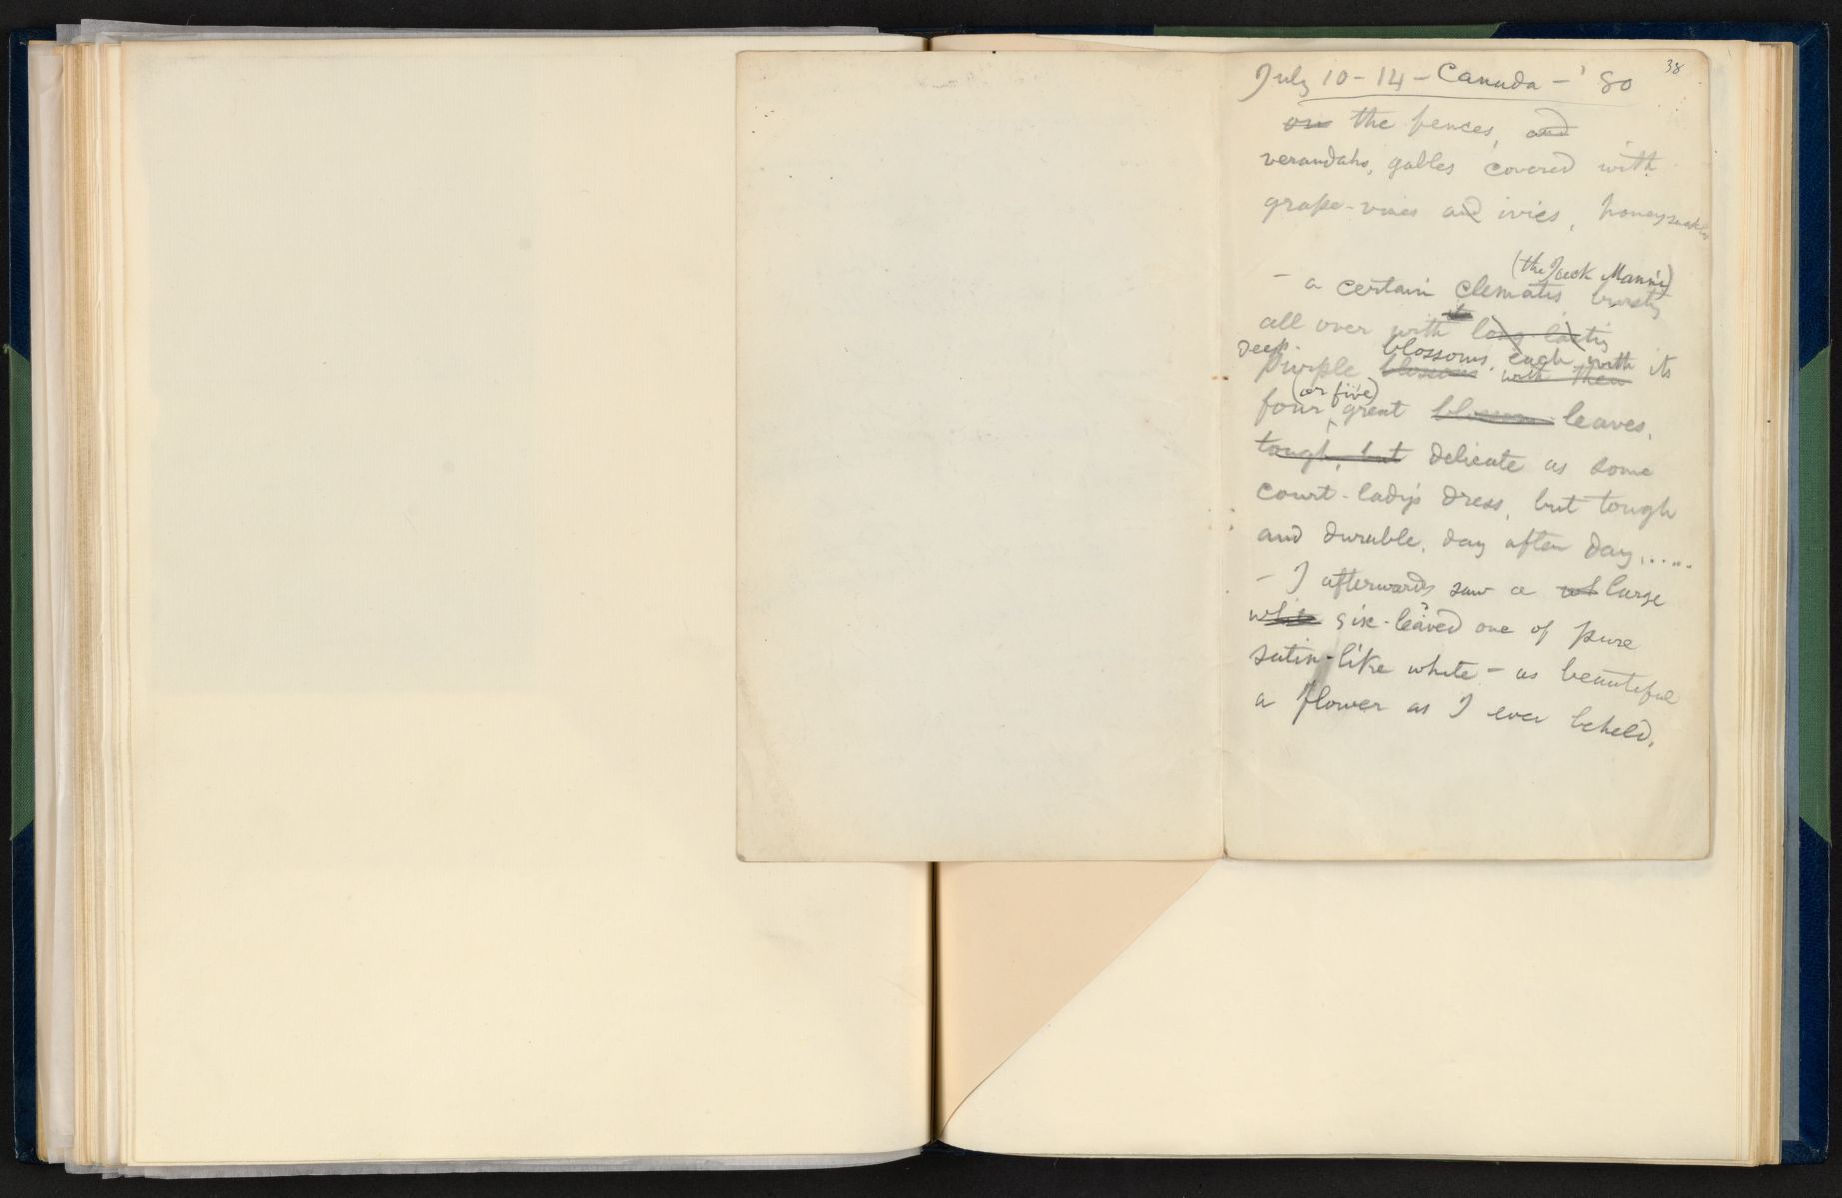 38
July 10 - 14 - Canada - '80
on the fences, and
verandahs, gables covered with
grape-vines and ivies, honeysuckles
(the Jack Manni)
- a certain clematis bursts
its
all over with long lasting
deep blossoms, each with its
purple blossoms with their
(or five)
four great blossom leaves,
tough, but delicate as some
court-lady's dress, but tough
and durable, day after day.....
- I afterwards saw a wh large
white six-leaved one of pure
satin-like white - as beautiful
a flower as I ever beheld.